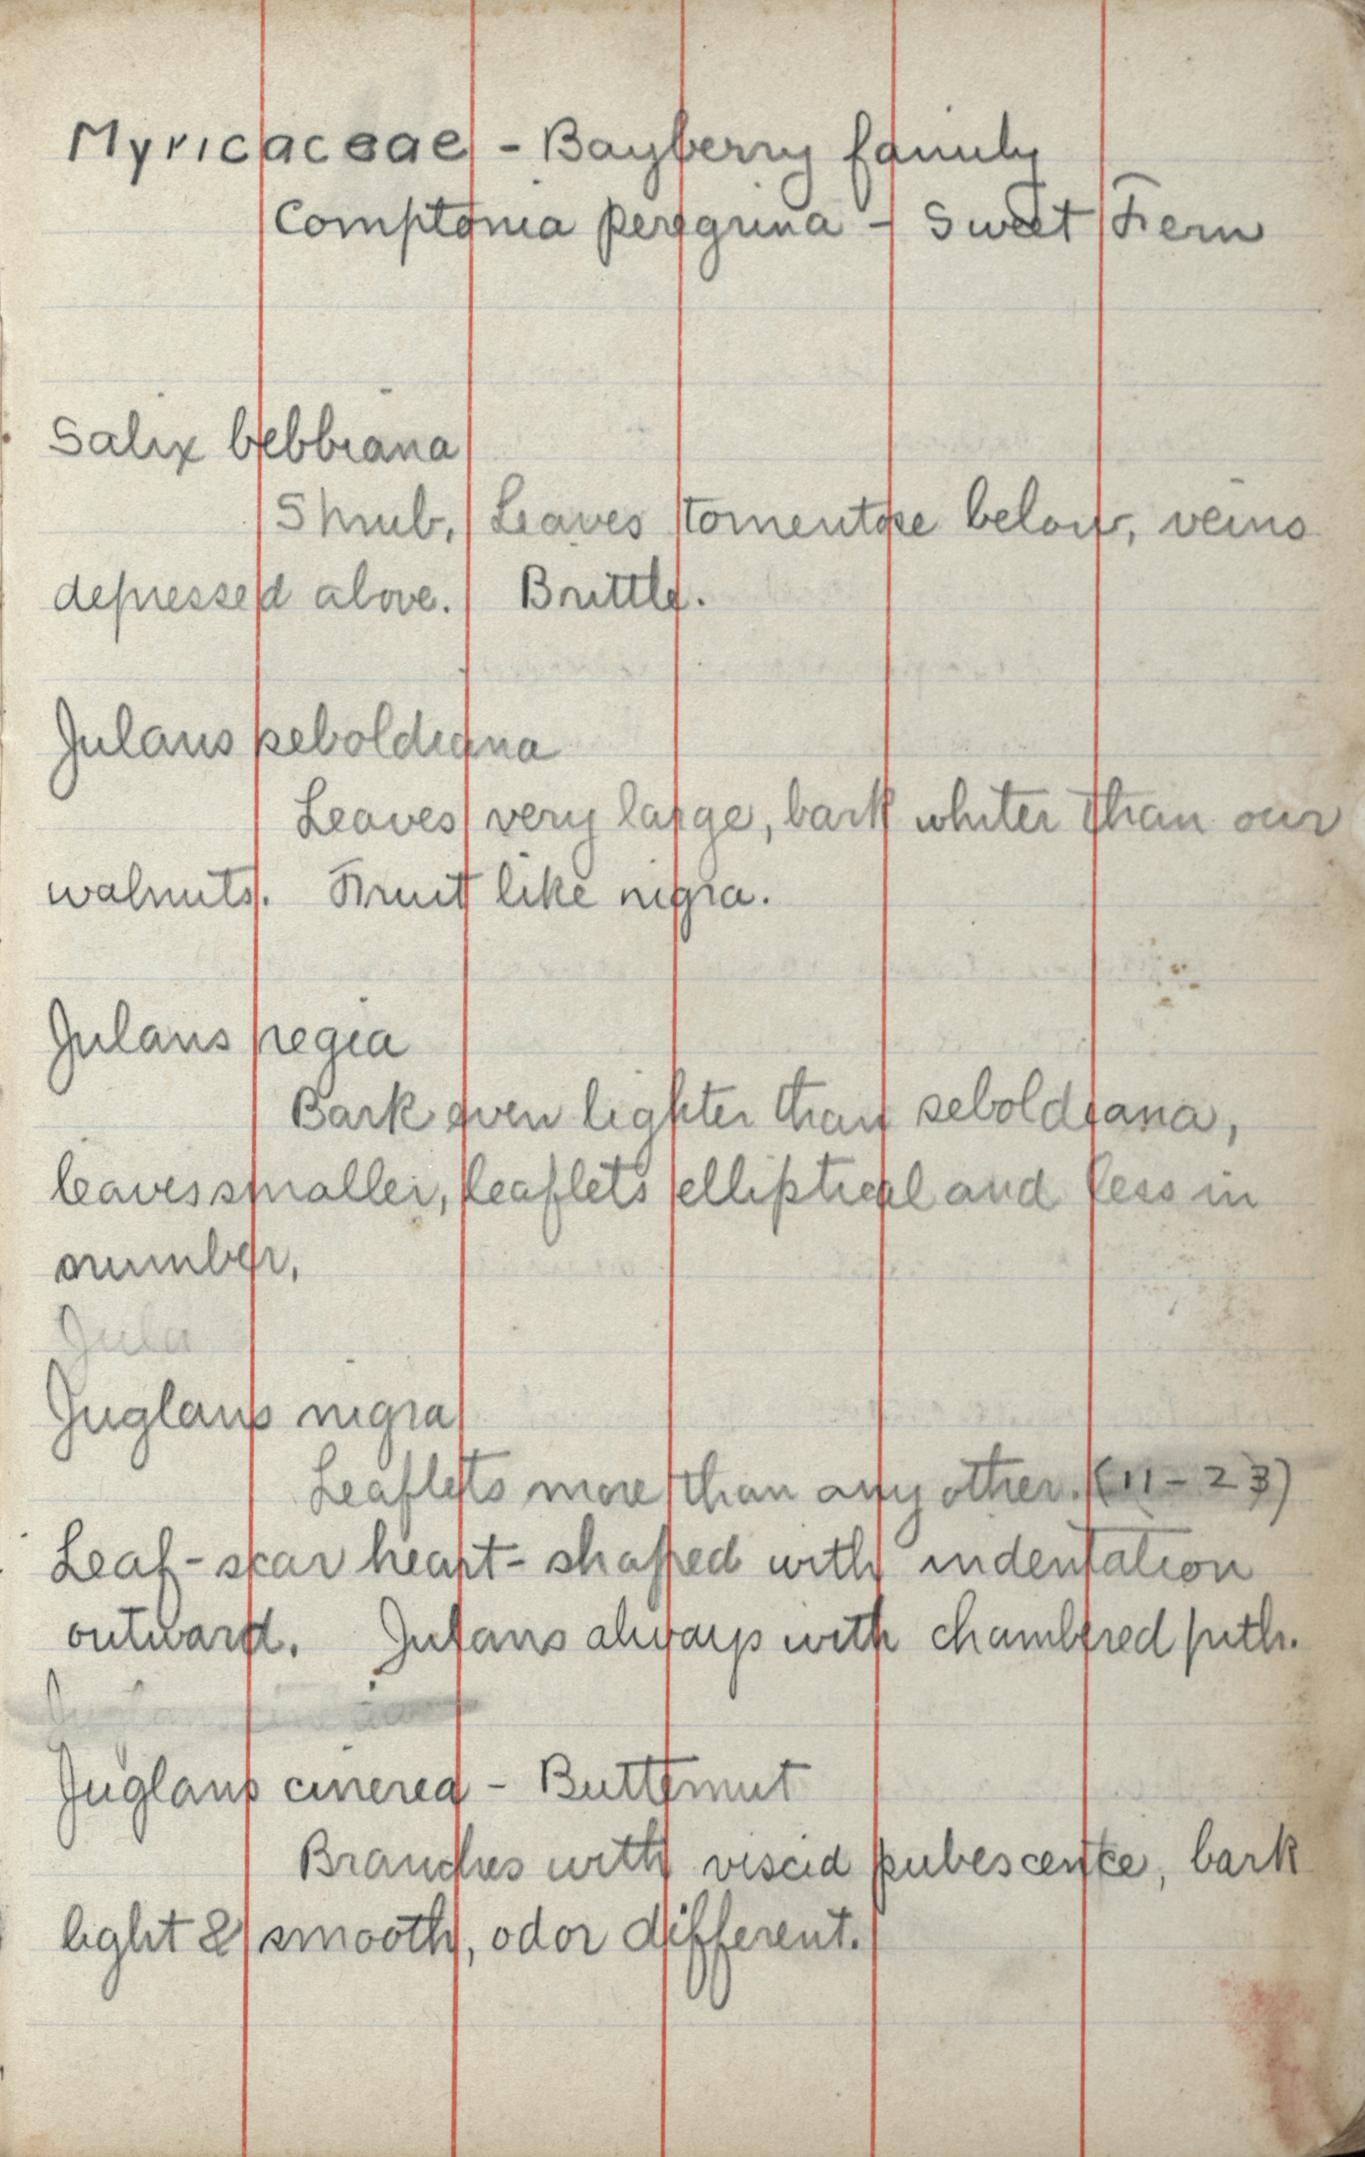 Myricaceae - Bayberry family
Comptonia peregrina - Sweet Fern
Salix bebbiana
Shrub, Leaves tomentose below, veins
depressed above. Brittle.
Julans seboldiana
Leaves very large, bark whiter than our
walnuts. Fruit like nigra.
Julans regia
Bark even lighter than seboldiana,
leaves smaller, leaflets elliptical and less in
number,
Jula
Juglans nigra
Leaflets more than any other. (11-23)
Leaf-scar heart-shaped with indentation
outward. Julans always with chambered pith.
Juglans cinerea
Juglans cinerea - Butternut
Branches with viscid pubescence, bark
light & smooth, odor different.